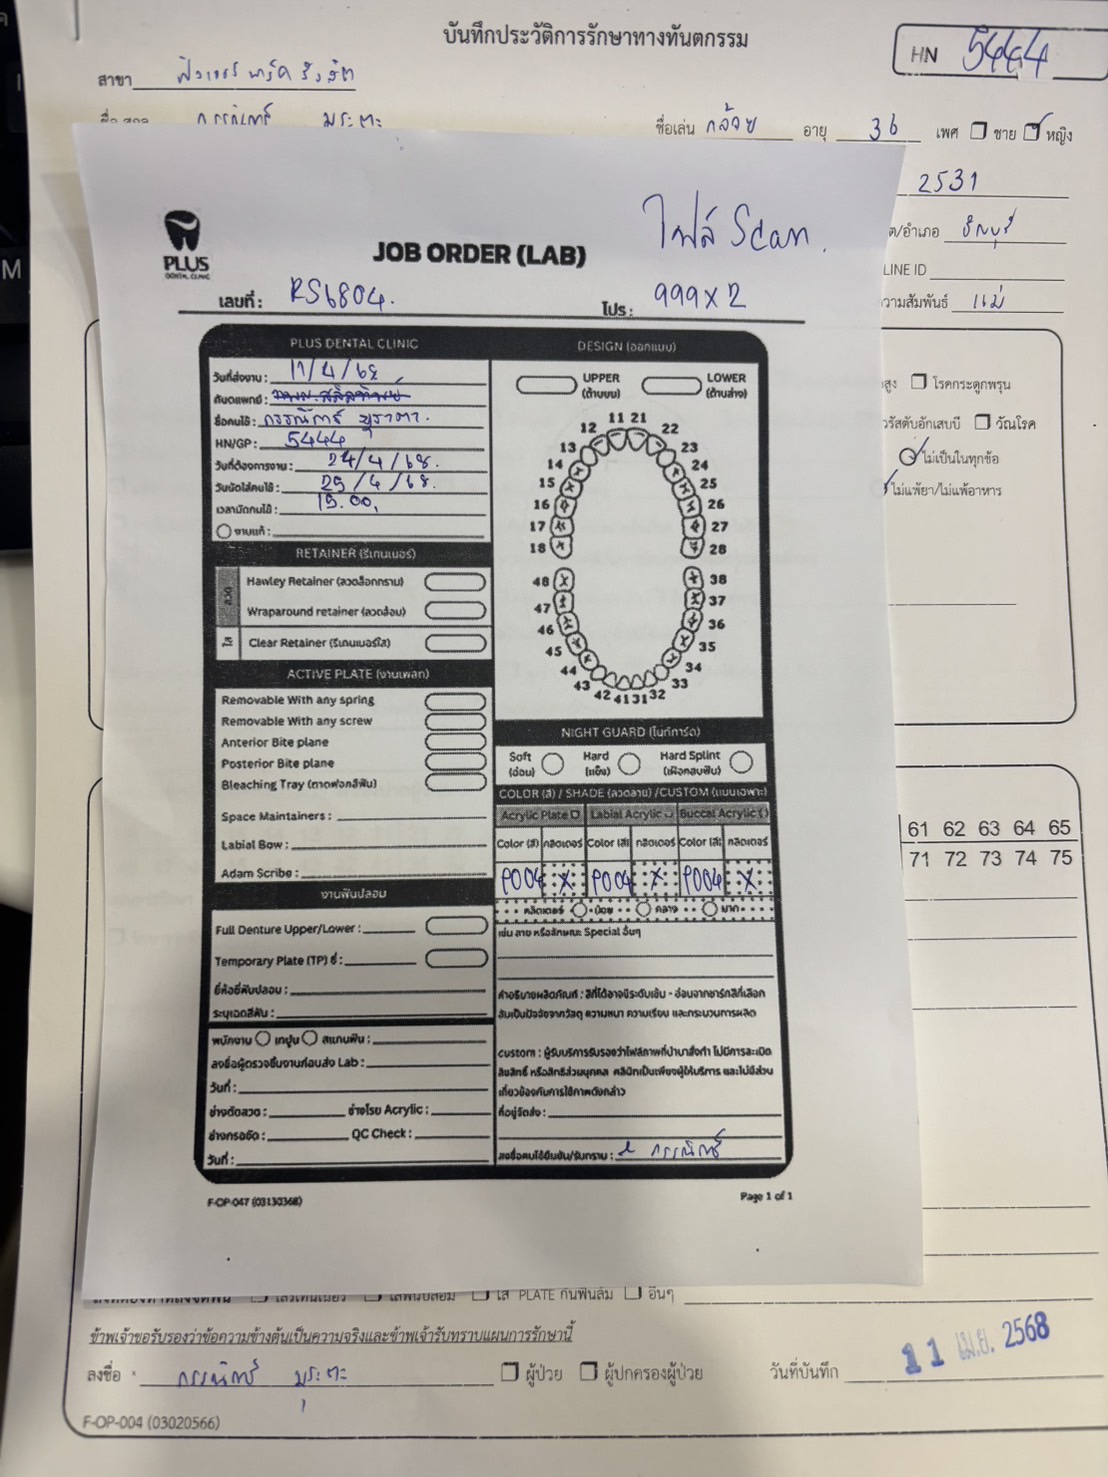 บันทึกประวัติการรักษาทางทันตกรรม
HN 5444
สาขา ฟิวเจอร์ พาร์ค รังสิต
ชื่อเล่น กล้วย อายุ 36 เพศ ชาย หญิง
2531
ต/อำเภอ ธัญบุรี
LINE ID
วามสัมพันธ์ แม่
สูง โรคกระดูกพรุน
วรัสตับอักเสบบี วัณโรค
ไม่เป็นในทุกข้อ
ไม่แพ้ยา/ไม่แพ้อาหาร
61 62 63 64 65
71 72 73 74 75
PLUS
DENTAL CLINIC
ไฟล์ Scan.
JOB ORDER (LAB)
เลขที่ : RS6804. โปร : 999x2
PLUS DENTAL CLINIC
วันที่ส่งงาน : 11/4/68
ทันตแพทย์ :
ชื่อคนไข้ :
HN/GP : 5444
วันที่ต้องการงาน : 24/4/68.
วันนัดใส่คนไข้ : 25/4/68.
เวลานัดคนไข้ : 15.00,
งานแก้ :
RETAINER (รีเทนเนอร์)
ลวด
Hawley Retainer (ลวดล็อกกราม)
Wraparound retainer (ลวดอ้อม)
ใส
Clear Retainer (รีเทนเนอร์ใส)
ACTIVE PLATE (งานเพลท)
Removable With any spring
Removable With any screw
Anterior Bite plane
Posterior Bite plane
Bleaching Tray (ถาดฟอกสีฟัน)
Space Maintainers :
Labial Bow :
Adam Scribe :
งานฟันปลอม
Full Denture Upper/Lower :
Temporary Plate (TP) ซี่ :
ยี่ห้อซี่ฟันปลอม :
ระบุเฉดสีฟัน :
พนักงาน เทปูน สแกนฟัน :
ลงชื่อผู้ตรวจชิ้นงานก่อนส่ง Lab :
วันที่ :
ช่างดัดลวด : ช่างโรย Acrylic :
ช่างกรอขัด : QC Check :
วันที่ :
DESIGN (ออกแบบ)
UPPER (ด้านบน) LOWER (ด้านล่าง)
11 21
12 22
13 23
14 24
15 25
16 26
17 27
18 28
48 38
47 37
46 36
45 35
44 34
43 33
42 41 31 32
NIGHT GUARD (ไนท์การ์ด)
Soft (อ่อน) Hard (แข็ง) Hard Splint (เฝือกสบฟัน)
COLOR (สี) / SHADE (ลวดลาย) /CUSTOM (แบบเฉพาะ)
Acrylic Plate Labial Acrylic Buccal Acrylic
Color (สี) กลิตเตอร์ Color (สี) กลิตเตอร์ Color (สี) กลิตเตอร์
P004 X P004 X P004 X
กลิตเตอร์ น้อย กลาง มาก
เช่น ลาย หรือลักษณะ Special อื่นๆ
คำอธิบายผลิตภัณฑ์ : สีที่ได้อาจมีระดับเข้ม - อ่อนจากชาร์ทสีที่เลือก
อันเป็นปัจจัยจากวัสดุ ความหนา ความเรียบ และกระบวนการผลิต
custom : ผู้รับบริการรับรองว่าไฟล์ภาพที่นำมาสั่งทำ ไม่มีการละเมิด
ลิขสิทธิ์ หรือสิทธิส่วนบุคคล คลินิกเป็นเพียงผู้ให้บริการ และไม่มีส่วน
เกี่ยวข้องกับการใช้ภาพดังกล่าว
ที่อยู่จัดส่ง :
ลงชื่อคนไข้ยืนยัน/รับทราบ : กรรณิการ์
F-OP-047 (03130368) Page 1 of 1
ใส่ PLATE กันฟันล้ม อื่นๆ
ข้าพเจ้าขอรับรองว่าข้อความข้างต้นเป็นความจริงและข้าพเจ้ารับทราบแผนการรักษานี้
ลงชื่อ กรรณิการ์ ผู้ป่วย ผู้ปกครองผู้ป่วย วันที่บันทึก 11 เม.ย. 2568
F-OP-004 (03020566)